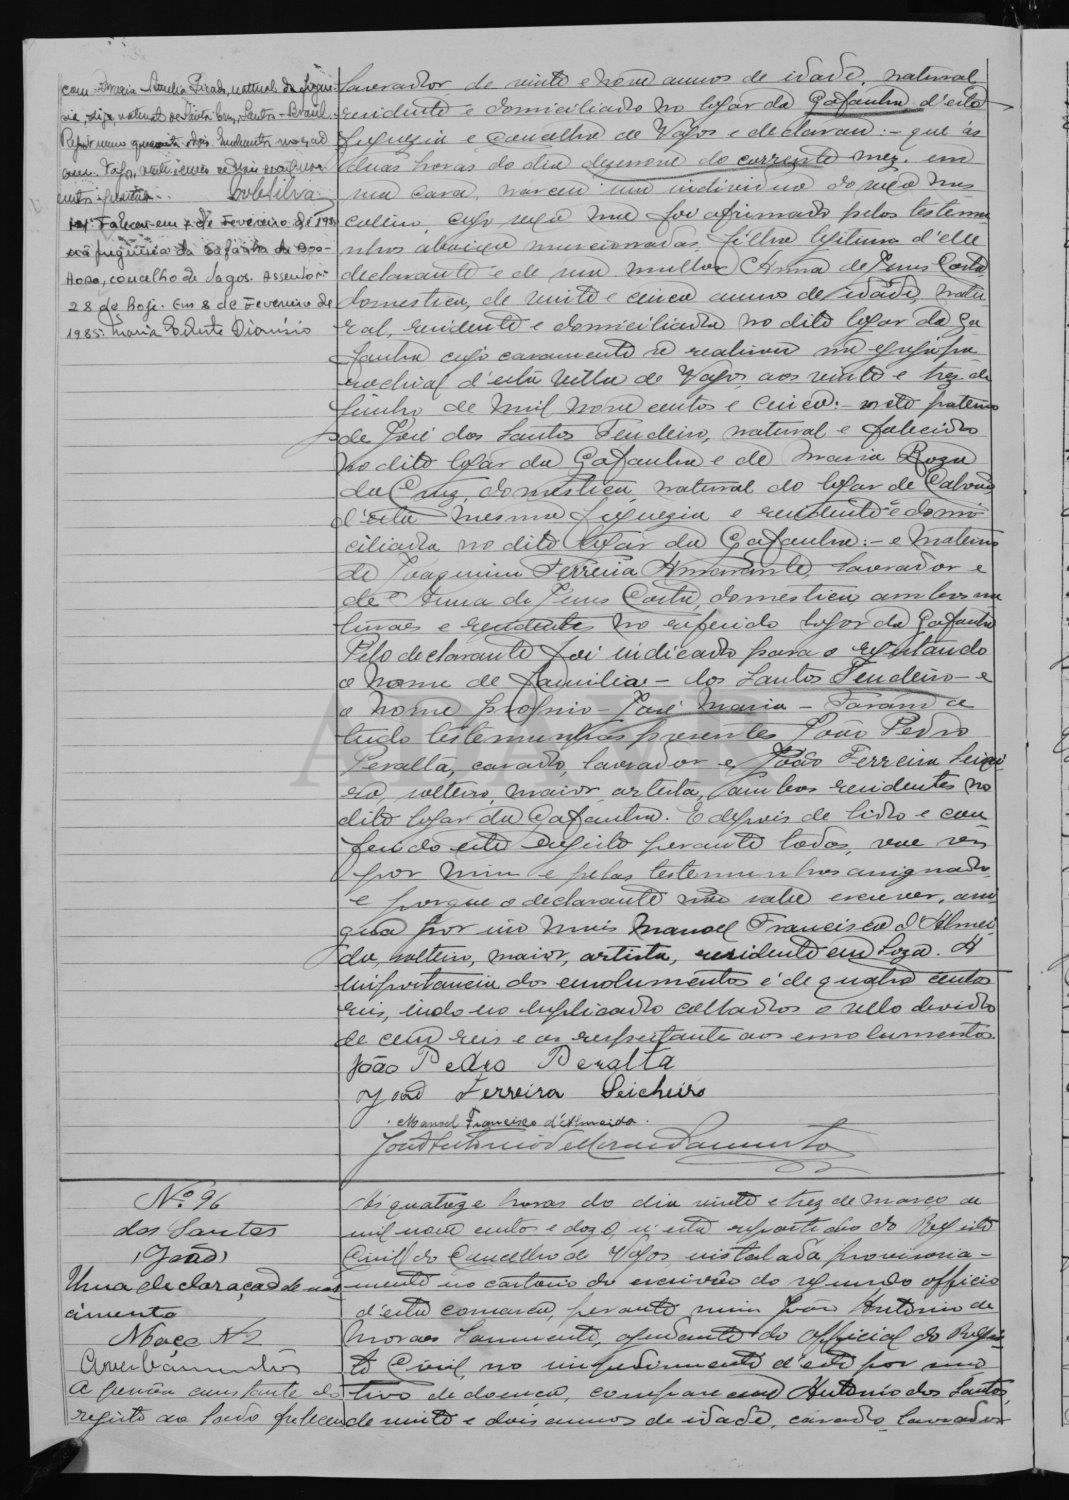 com Maria Amelia Pirado, natural da
digo, natural de Santa Cruz, Santos - Brasil.
Reg.º numero quarenta e dois
ouve. Vagos, vinte
Silva
Nº 1. Faleceu em 7 de Fevereiro de 1985
na freguesia da Gafanha da Boa-
Hora, concelho de Vagos. Assento nº
28 de hoje. Em 8 de Fevereiro de
1985. Maria Odete Dionísio
lavrador, de vinte e nove annos de idade, natural
residente e domiciliado no logar da Gafanha d'esta
freguezia e concelho de Vagos e declarou: - que ás
duas horas do dia dezenove do corrente mez, em
sua casa, nasceu um individuo do sexo mas
culino, cujo sexo me foi afirmado pelas testemu
nhas abaixo mencionadas, filho legitimo d'elle
declarante e de sua mulher Anna de Jesus Costa
domestica, de vinte e cinco annos de idade, natu
ral, residente e domiciliada no dito logar da Ga
fanha cujo casamento se realisou na egreja pa
rochial d'esta villa de Vagos, aos vinte e trez de
Junho de mil nove centos e cinco: - neto paterno
de José dos Santos Tendeiro, natural e falecido
no dito logar da Gafanha e de Maria Roza
da Cruz, domestica, natural do logar de Calvão,
d'esta mesma freguezia e residente e domi
ciliada no dito logar da Gafanha: - e materno
de Joaquim Ferreira Amarante, lavrador e
de Anna de Jesus Costa, domestica, ambos na
turaes e residentes no referido logar da Gafanha
Pelo declarante foi indicado para o registando
o nome de familia - dos Santos Tendeiro - e
o nome proprio - José Maria - Foram a
tudo testemunhas presentes João Pedro
Peralta, casado, lavrador e João Ferreira Seixei
ro, solteiro, maior, artista, ambos residentes no
dito logar da Gafanha. E depois de lido e con
ferido este registo perante todos, vae ser
por mim e pelas testemunhas assignado,
e porque o declarante não sabe escrever, assi
gna por elle Manoel Francisco d'Almei
da, solteiro, maior, artista, residente em Soza. A
importancia dos emolumentos é de quatro centos
reis, indo no duplicado collados o sello devido
de cem reis e os respeitante aos emolumentos.
João Pedro Peralta
João Ferreira Seicheiro
Manoel Francisco d'Almeida.
João Antonio de Moraes Sarmento
Nº 96
dos Santos
(João)
Uma declaração de nas
cimento
Maço Nº 2
Averbamentos
A pessoa constante do
registo ao lado faleceu
Ás quatorze horas do dia vinte e trez de março de
mil nove centos e doze, n'esta repartição do Registo
Civil do Concelho de Vagos, installada provisoria-
mente no cartorio do escrivão do segundo officio
d'esta comarca, perante mim João Antonio de
Moraes Sarmento, ajudante do official do Regis
to Civil, no impedimento d'este por mo
tivo de doença, compareceu Antonio dos Santos,
de vinte e dois annos de idade, casado, lavrador